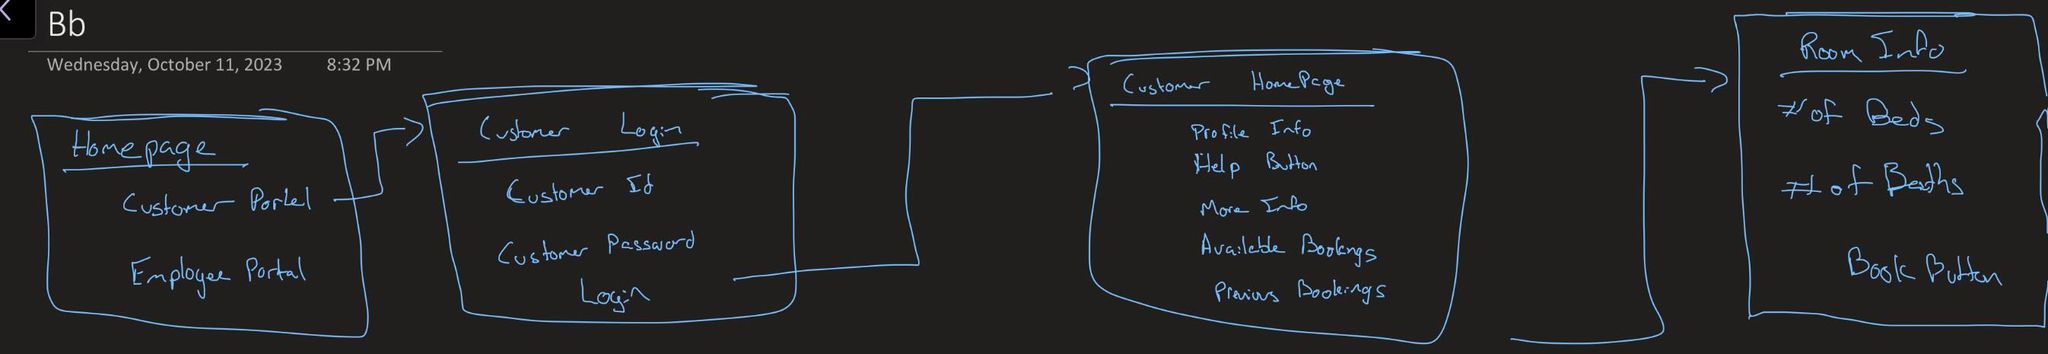 Bb
Wednesday, October 11, 2023 8:32 PM
Homepage
Customer Portal
Employee Portal
Customer Login
Customer Id
Customer Password
Login
Customer HomePage
Profile Info
Help Button
More Info
Available Bookings
Previous Bookings
Room Info
# of Beds
# of Baths
Book Button